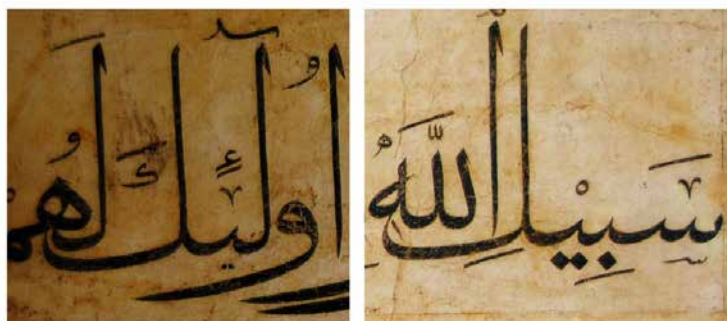 اُولٰٓئِكَ لَهُمْ
سَبِيْلِ اللّٰهِ